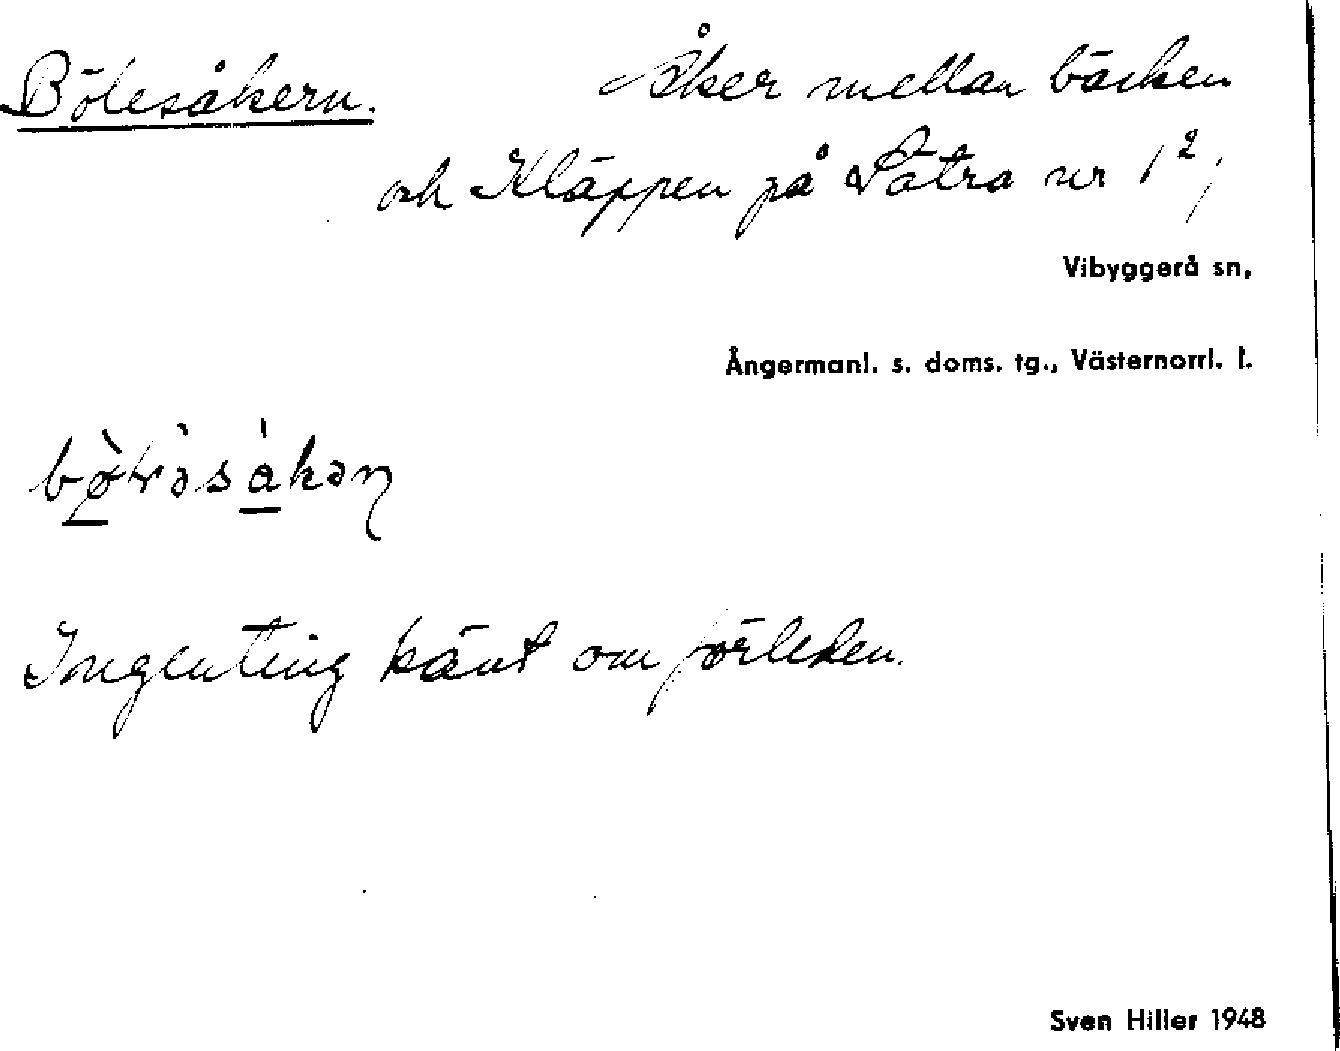 Bölesåkern. Åker mellan bäcken
och Kläppen på Sätra nr 1²,
Vibyggerå sn,
Ångermanl. s. doms. tg., Västernorrl. l.
Ingenting känt om förleden.
Sven Hiller 1948